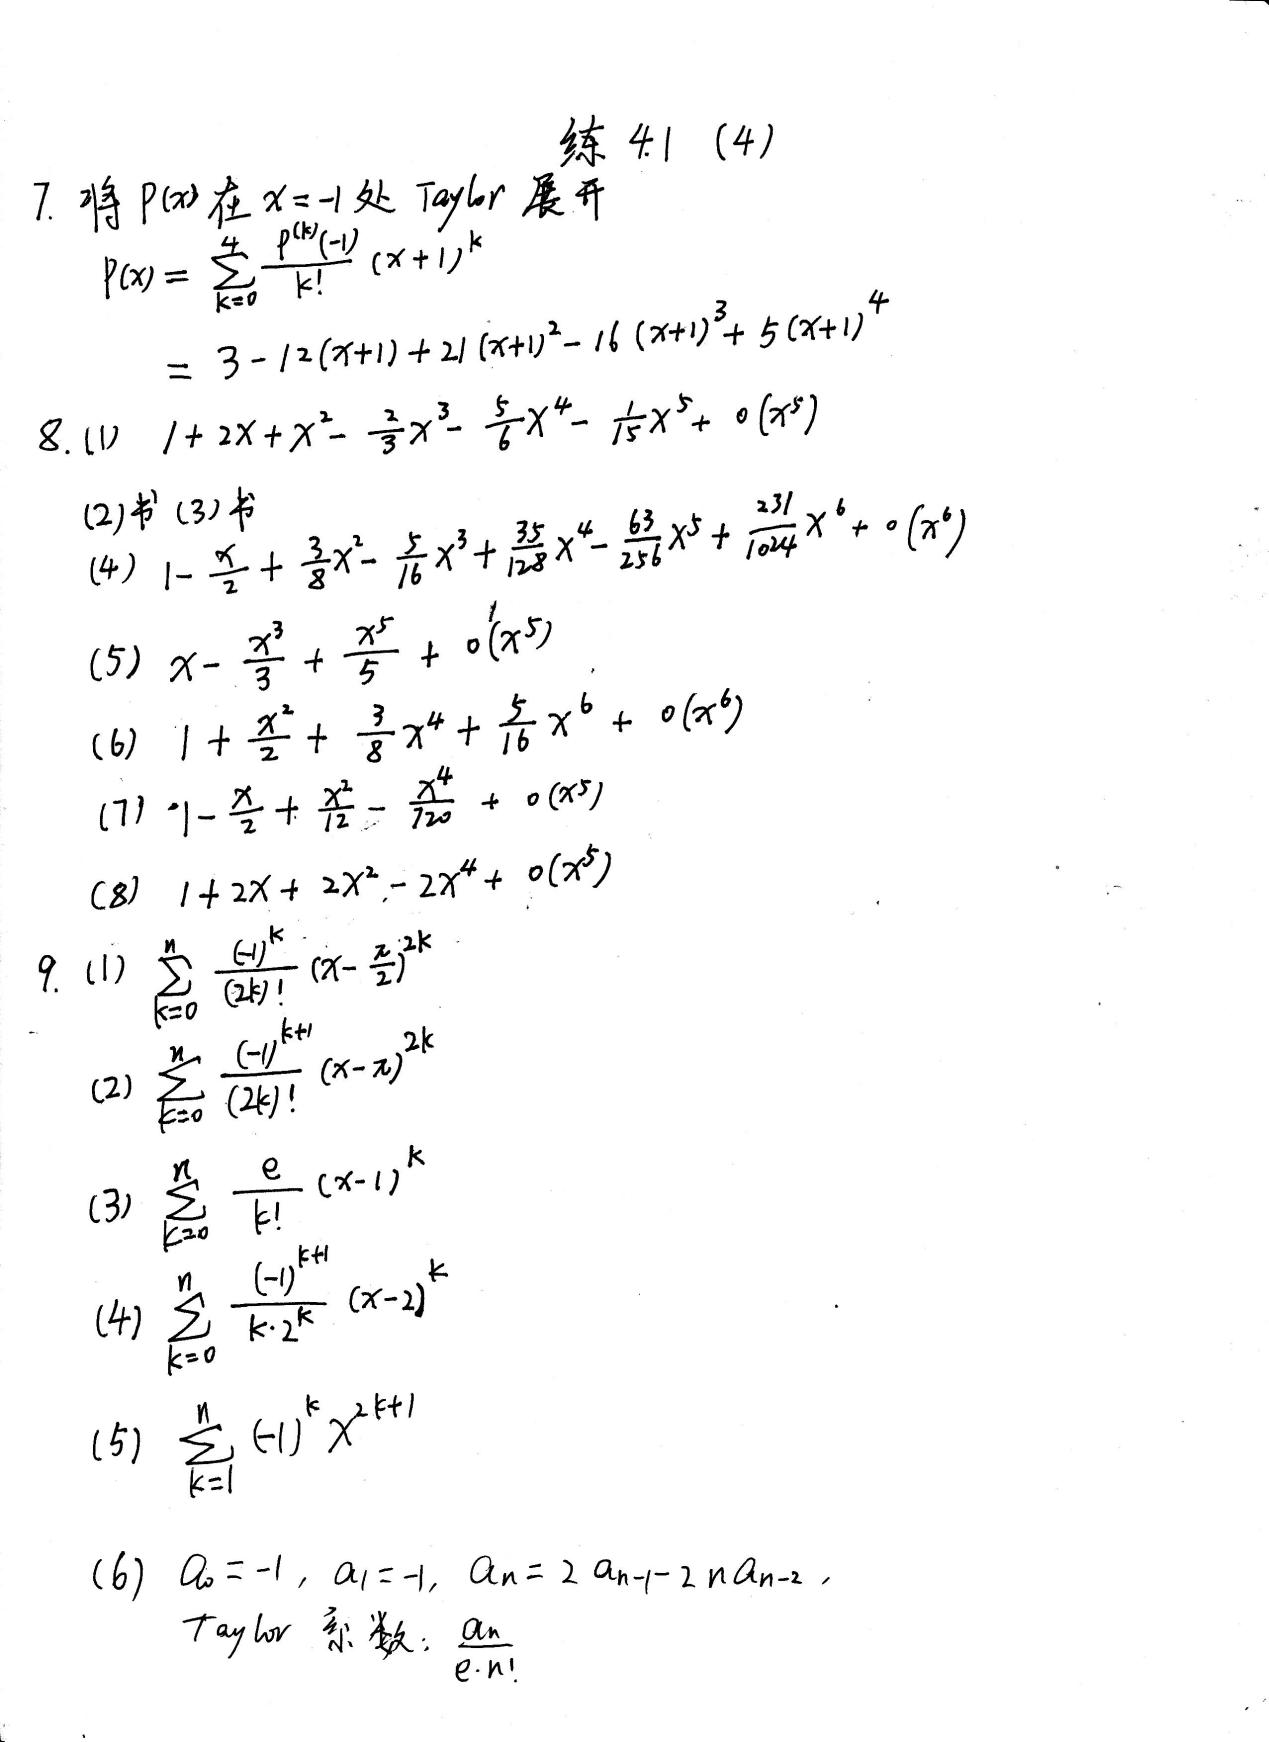 练 4.1 (4)
7. 将 P(x) 在 x=-1 处 Taylor 展开
P(x) = \sum_{k=0}^{4} \frac{P^{(k)}(-1)}{k!} (x+1)^k
= 3-12(x+1)+21(x+1)^2-16(x+1)^3+5(x+1)^4
8. (1) 1+2x+x^2-\frac{2}{3}x^3-\frac{5}{6}x^4-\frac{1}{15}x^5+o(x^5)
(2) 书 (3) 书
(4) 1-\frac{x}{2}+\frac{3}{8}x^2-\frac{5}{16}x^3+\frac{35}{128}x^4-\frac{63}{256}x^5+\frac{231}{1024}x^6+o(x^6)
(5) x-\frac{x^3}{3}+\frac{x^5}{5}+o(x^5)
(6) 1+\frac{x^2}{2}+\frac{3}{8}x^4+\frac{5}{16}x^6+o(x^6)
(7) 1-\frac{x}{2}+\frac{x^2}{12}-\frac{x^4}{720}+o(x^5)
(8) 1+2x+2x^2-2x^4+o(x^5)
9. (1) \sum_{k=0}^{n} \frac{(-1)^k}{(2k)!} (x-\frac{π}{2})^{2k}
(2) \sum_{k=0}^{n} \frac{(-1)^{k+1}}{(2k)!} (x-π)^{2k}
(3) \sum_{k=0}^{n} \frac{e}{k!} (x-1)^k
(4) \sum_{k=0}^{n} \frac{(-1)^{k+1}}{k·2^k} (x-2)^k
(5) \sum_{k=1}^{n} (-1)^k x^{2k+1}
(6) a_0=-1, a_1=-1, a_n=2a_{n-1}-2na_{n-2},
Taylor 系数: \frac{a_n}{e·n!}